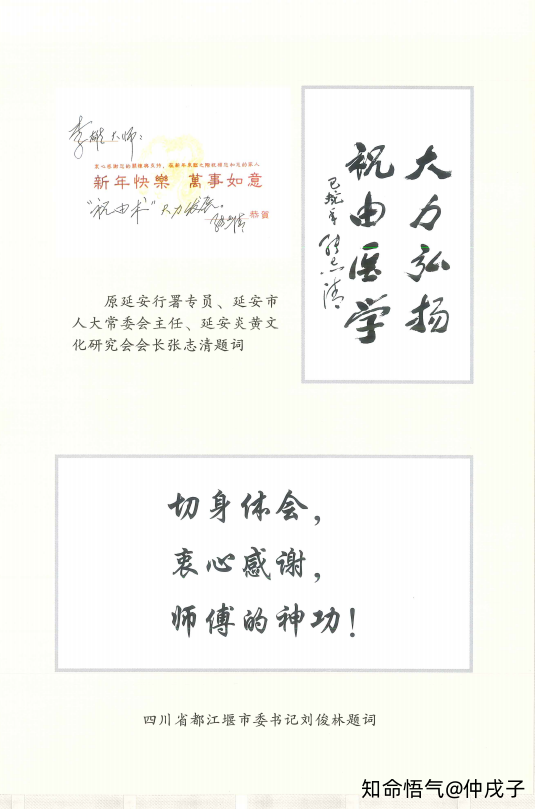 李雄大师：
衷心感谢您的关怀与支持，在新年来临之际祝福您和您的家人
新年快樂　萬事如意
“祝由术”大力发展。
恭賀
大力弘扬
祝由医学
张志清
原延安行署专员、延安市
人大常委会主任、延安炎黄文
化研究会会长张志清题词
切身体会，
衷心感谢，
师傅的神功！
四川省都江堰市委书记刘俊林题词
知命悟气@仲戌子